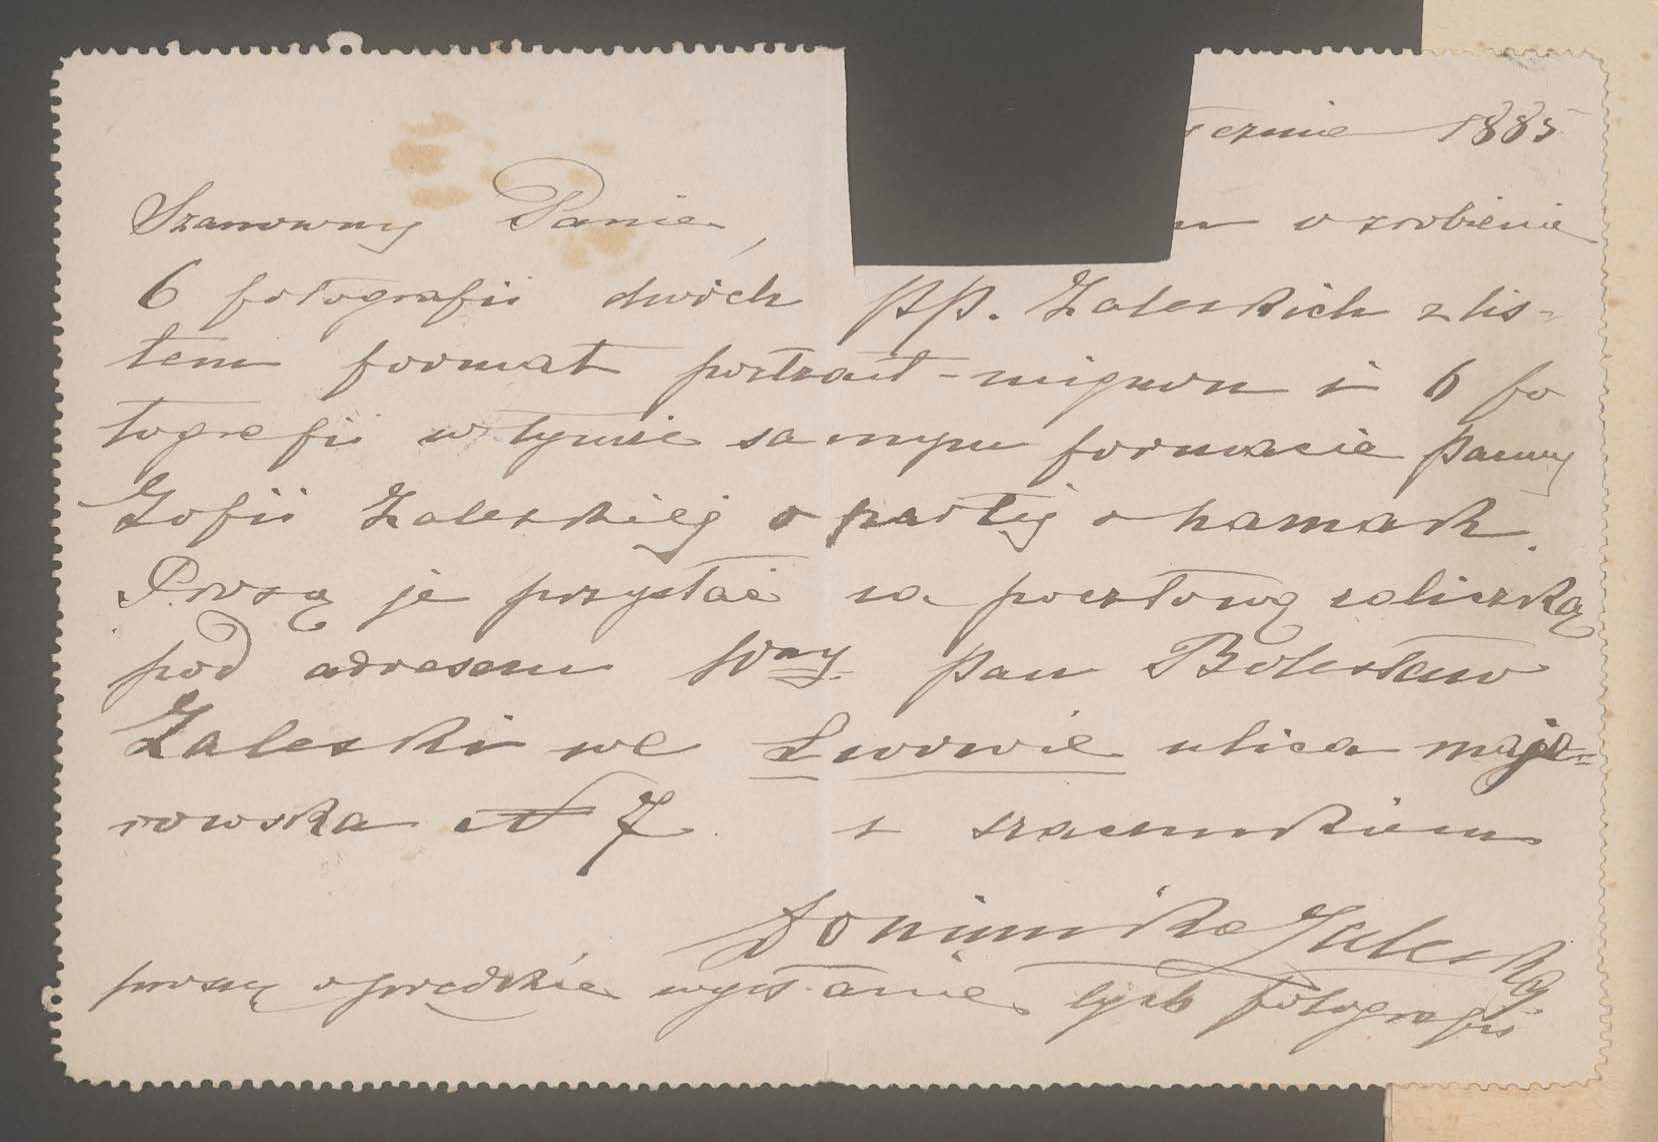 1885
Szanowny Panie, o zrobienie
6 fotografii dwóch pp. Zaleskich z lis-
tem format portrait-mignon i 6 fo
tografii w tymże samym formacie panny
Zofii Zaleskiej opartej o hamak.
Proszę je przysłać za pocztową zaliczką
pod adresem Wny pan Bolesław
Zaleski we Lwowie ulica majo=
rowska N 7 z szacunkiem
Dominika Zaleska
proszę o prędkie wysłanie tych fotografii